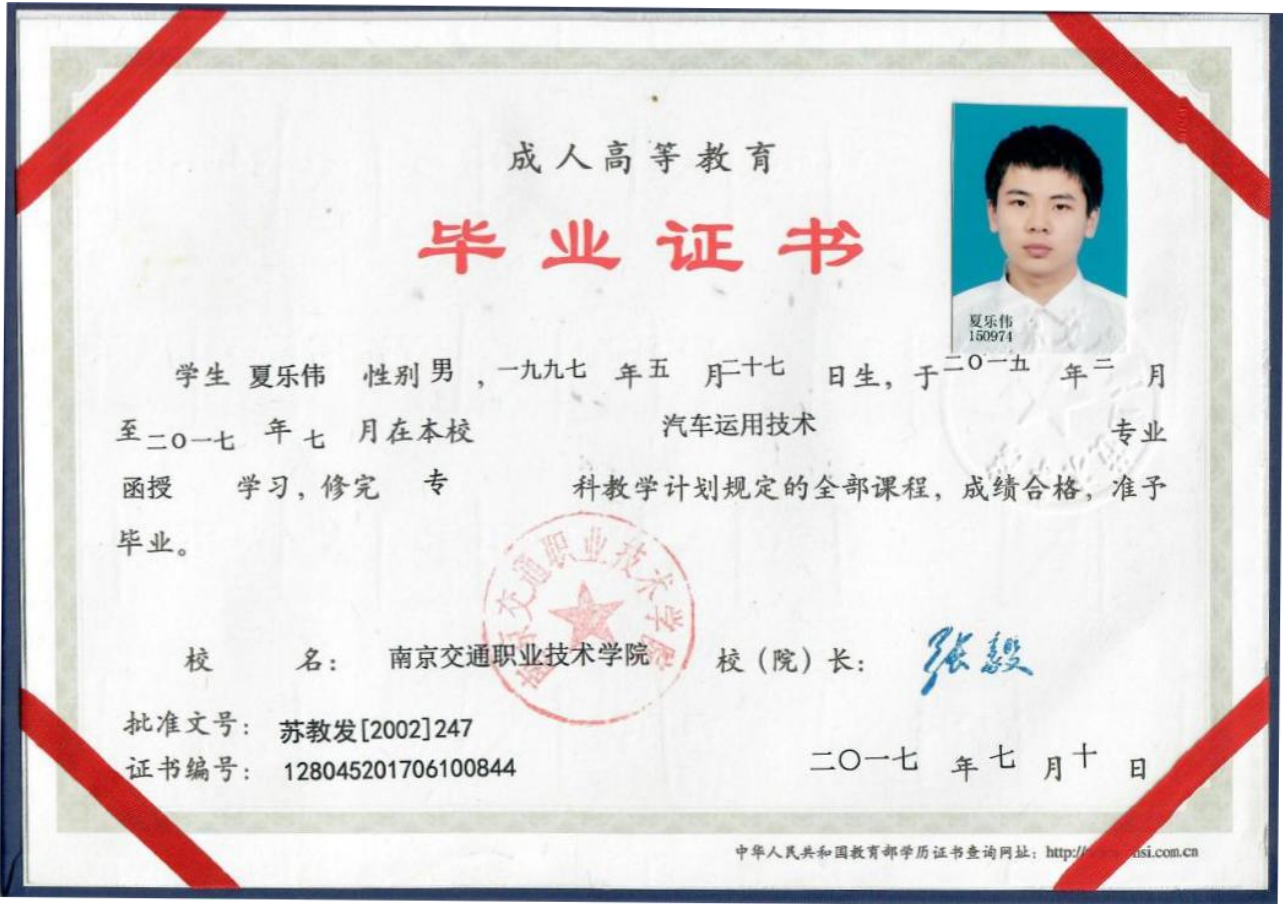 成人高等教育
毕业证书
夏乐伟
150974
学生 夏乐伟 性别 男 , 一九九七 年 五 月 二十七 日生, 于 二〇一五 年 二 月
至 二〇一七 年 七 月在本校 汽车运用技术 专业
函授 学习, 修完 专 科教学计划规定的全部课程, 成绩合格, 准予
毕业。
南京交通职业技术学院
校 名: 南京交通职业技术学院 校(院)长: 张毅
批准文号: 苏教发[2002]247
证书编号: 128045201706100844
二〇一七 年 七 月 十 日
中华人民共和国教育部学历证书查询网址: http:// si.com.cn